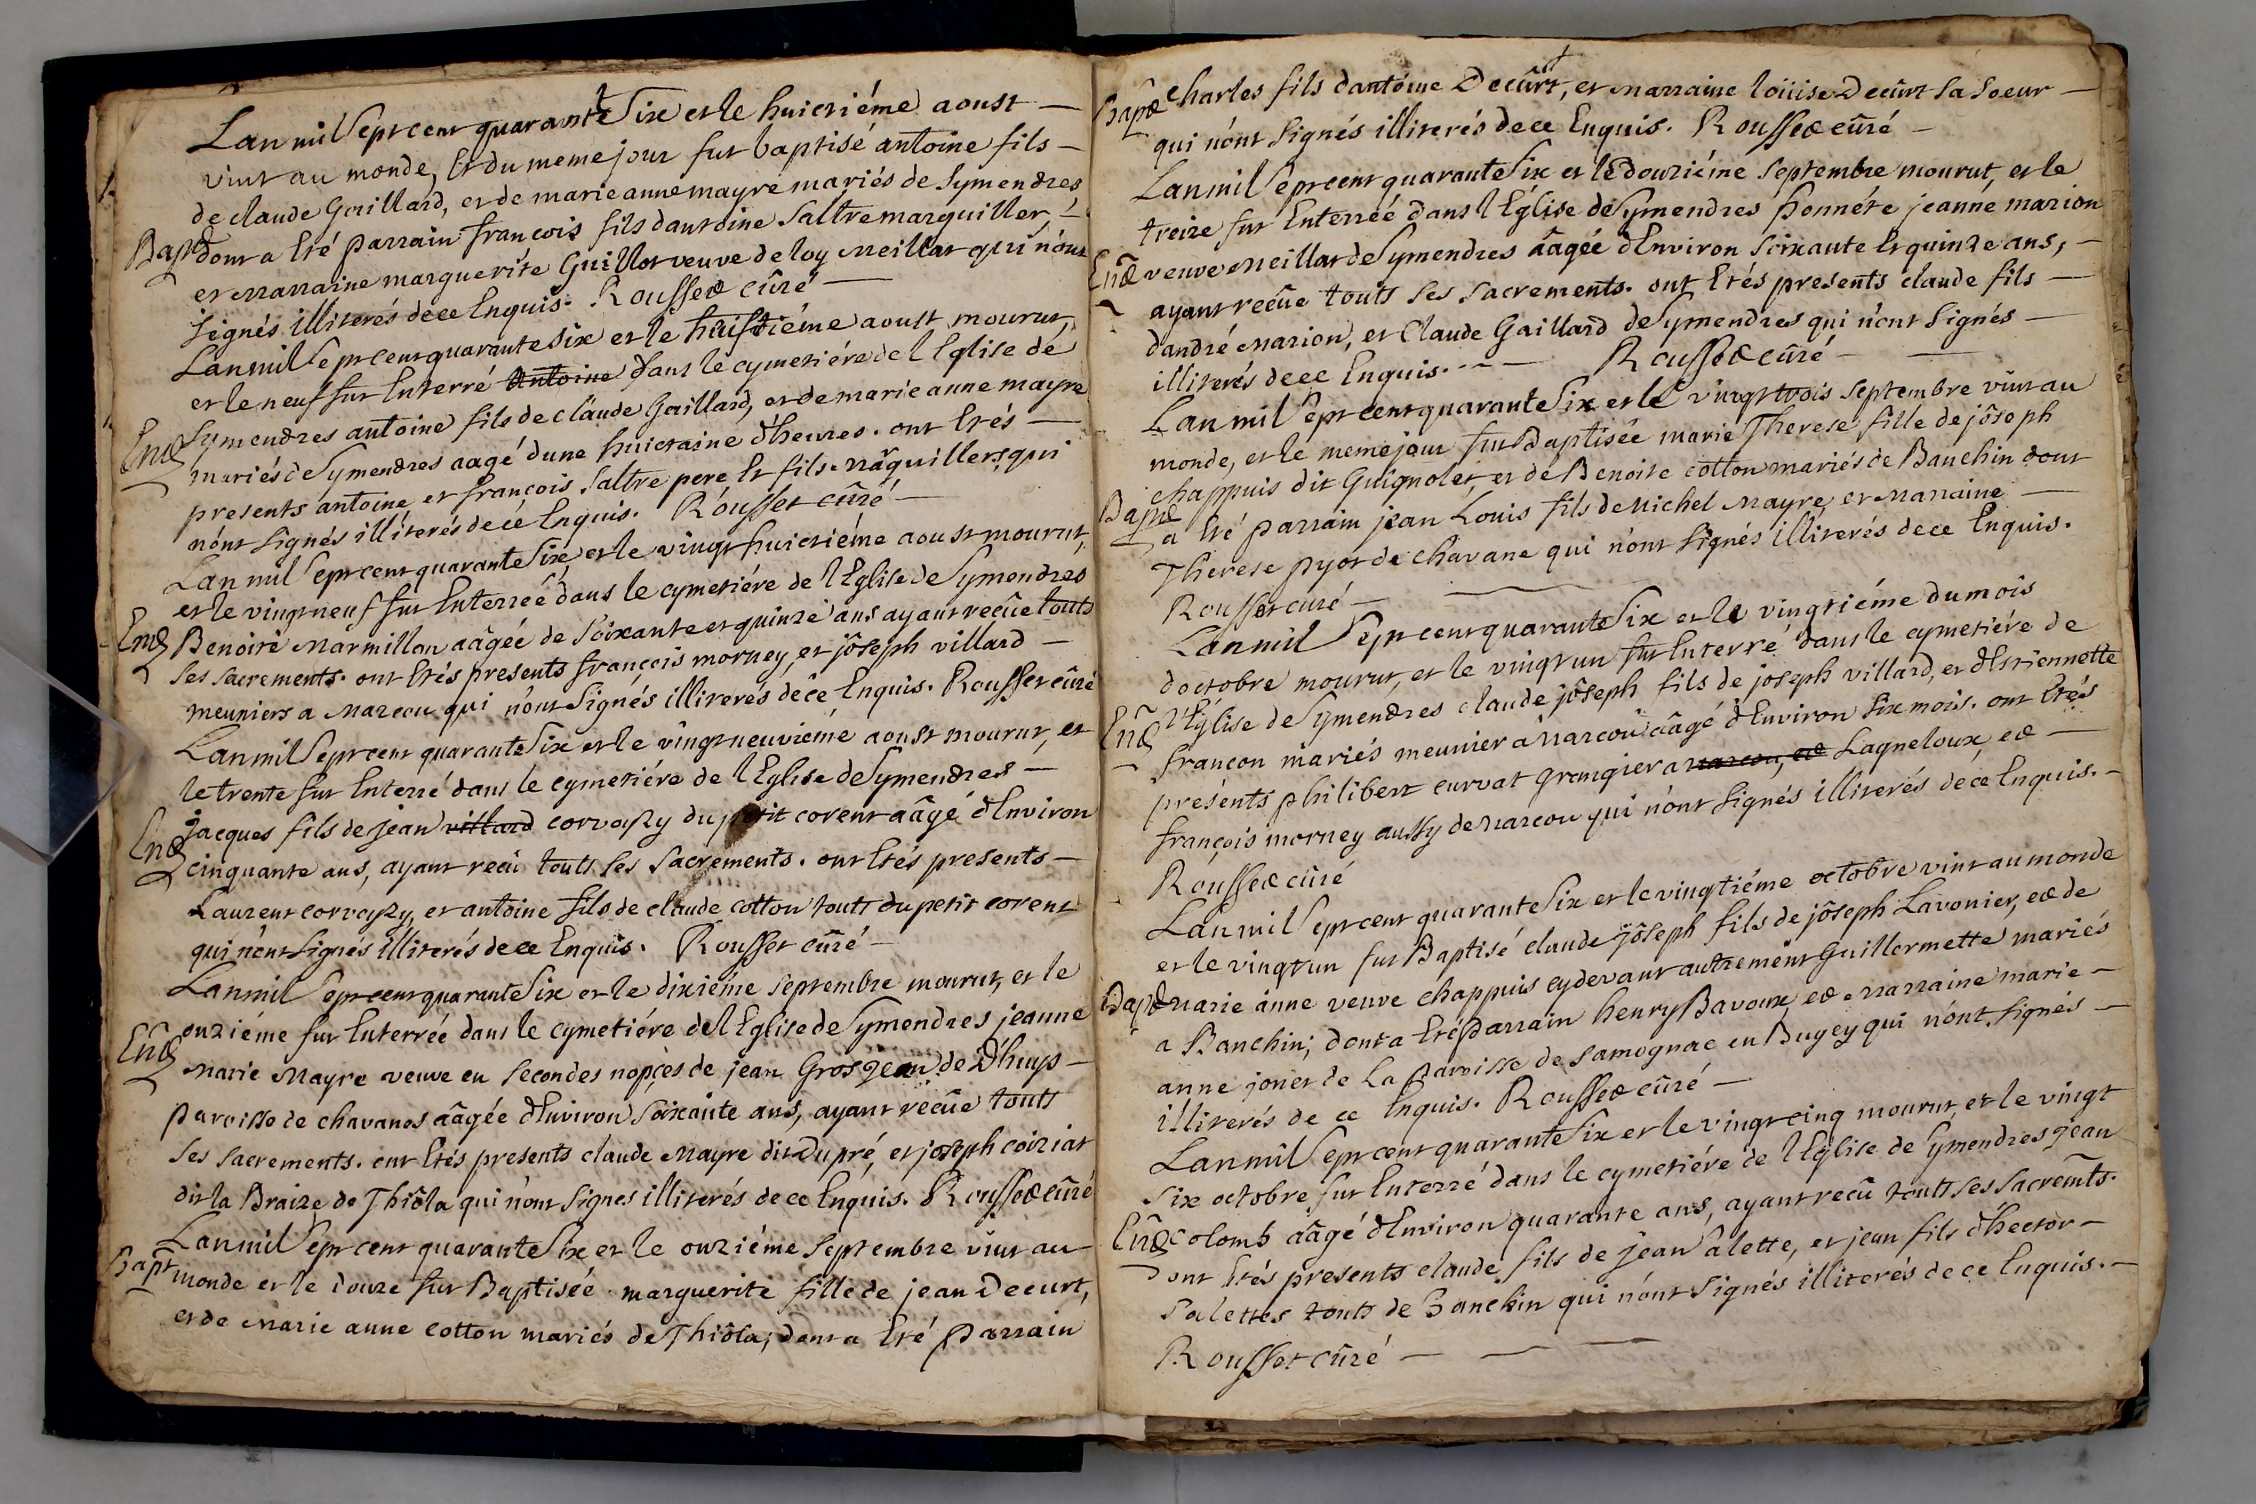 Lan mil Sept cent quarante Six et le huictiéme aoust —
vint au monde, Et du meme jour fut baptisé antoine fils —
de claude Gaillard, et de marie anne mayre mariés de Symendres
Bapt dont a Eté parrain françois fils dantoine Saltre marguiller, —
et marraine marguerite Guillot veuve de loy meillat qui n'ont
signés illiterés de ce Enquis. Rousset cûré —
Lan mil Sept cent quarante six et le huistiéme aoust mourut,
et le neuf fut Enterré Antoine dans le cymetiére de l Eglise de
Symendres antoine fils de claude Gaillard, et de marie anne mayre
Ent mariés de Symendres aagé dune huictaine d'heures. ont Etés —
presents antoine, et françois Saltre pere Et fils marguillers, qui
n'ont signés illiterés de ce Enquis. Rousset cûré —
Lan mil Sept cent quarante Six et le vingt huictiéme aoust mourut,
et le vingt neuf fut Enterrée dans le cymetiére de l Eglise de Symendres
Ent Benoite Marmillon aâgée de soixante et quinze ans ayant reçûe touts
ses sacrements. ont Etés presents françois morney, et jôseph villard —
meuniers a Marcou qui n'ont Signés illiterés de ce Enquis. Rousset cûré
Lan mil Sept cent quarante Six et le vingt neuviéme aoust mourut, et
le trente fut Enterré dans le cymetiére de l Eglise de Symendres —
Ent Jacques fils de jean villard corvoysy du petit corent aâgé d'Environ
cinquante ans, ayant reçû touts ses sacrements. ont Etés presents —
Laurent corvoysy, et antoine fils de claude cotton touts du petit corent
qui n'ont signés illiterés de ce Enquis. Rousset cûré —
Lan mil Sept cent quarante Six et le dixiéme septembre mourut, et le
onziéme fut Enterrée dans le cymetiére de l Eglise de Symendres jeanne
Ent Marie Mayre veuve en secondes nopçes de jean Grosjean de Dhuys —
paroisse de chavanes aâgée d'Environ soixante ans, ayant reçûe touts
ses sacrements. ont Etés presents claude Mayre dit Dupré, et joseph coiziat
dit la Braize de Thiôla qui n'ont signés illiterés de ce Enquis. Rousset cûré
Lan mil Sept cent quarante Six et le onziéme septembre vint au —
Bapt monde et le douze fut Baptisée marguerite fille de jean Decurt,
et de Marie anne cotton mariés de Thiôla; dont a Eté parrain
Bapt charles fils dantoine Decûrt, et marraine loüise Decûrt sa soeur —
qui n'ont signés illiterés de ce Enquis. Rousset cûré —
Lan mil Sept cent quarante Six et le douziéme septembre mourut, et le
treize fut Enterrée dans l Eglise de Symendres honnéte jeanne marion
Ent veuve Meillat de Symendres aâgée d'Environ soixante Et quinze ans, —
ayant reçûe touts ses sacrements. ont Etés presents claude fils —
dandré Marion, et Claude Gaillard de Symendres qui n'ont signés —
illiterés de ce Enquis. — Rousset cûré —
Lan mil Sept cent quarante Six et le vingt trois septembre vint au
monde, et le meme jour fut Baptisée marie Therese fille de jôseph
chappuis dit Guignolet, et de Benoite cotton mariés de Banchin dont
Bapt a Eté parrain jean Louis fils de Michel Mayre, et Marraine —
Therese pyot de chavane qui n'ont signés illiterés de ce Enquis.
Rousset curé —
Lan mil Sept cent quarante Six et le vingtiéme du mois
doctobre mourut, et le vingt un fut Enterré dans le cymetiére de
Ent l'Eglise de Symendres claude jôseph fils de joseph villard, et dEstiennette
françon mariés meunier a Marcou aâgé d'Environ six mois. ont Etés
présents philibert curvat grangier a Marcou, et Lagneloux, et —
françois morney aussy de Marcou qui n'ont signés illiterés de ce Enquis. —
Rousset cûré
Lan mil Sept cent quarante Six et le vingtiéme octobre vint au monde
et le vingt un fut Baptisé claude jôseph fils de jôseph Lavonier, et de
Bapt Marie anne veuve chappuis cydevant autrement Guillermette mariés
a Banchin; dont a Eté parrain henry Bavoux, et Marraine marie —
anne jonet de La paroisse de samognac en Bugey qui n'ont signés —
illiterés de ce Enquis. Rousset cûré —
Lan mil Sept cent quarante Six et le vingt cinq mourut, et le vingt
six octobre fut Enterré dans le cymetiére de l Eglise de Symendres jean
Ent colomb aâgé d'Environ quarante ans, ayant reçû touts ses sacremts.
ont Etés presents claude fils de jean salette, et jean fils d'hector —
salettes touts de Banchin qui n'ont signés illiterés de ce Enquis. —
Rousset cûré —